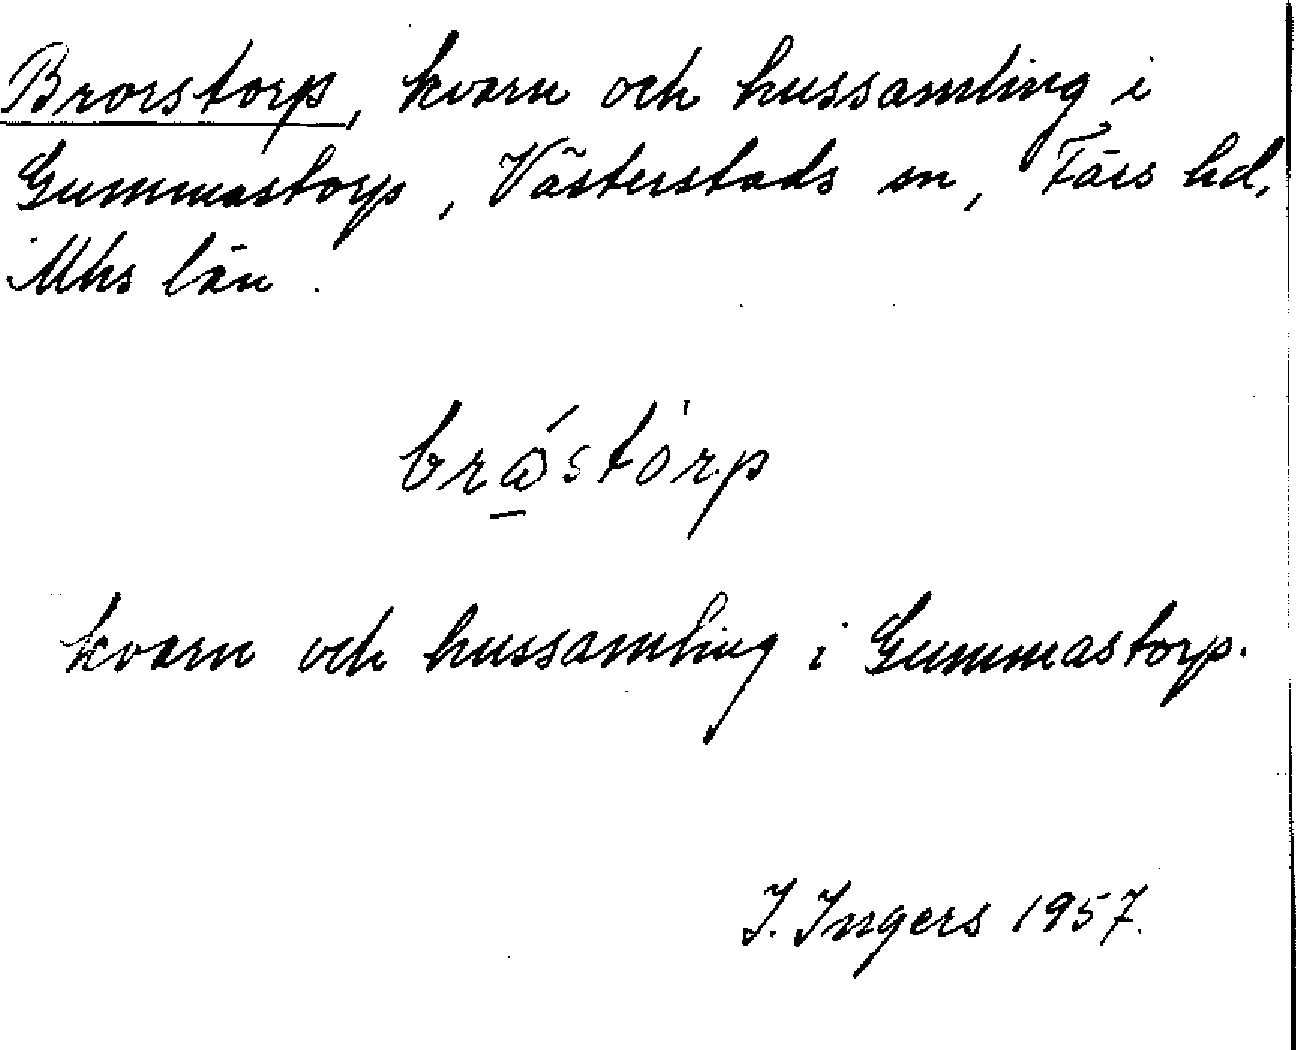 Brorstorp, kvarn och hussamling i
Gummastorp, Västerstads sn, Färs hd,
Mhs län.
bråstòrp
kvarn och hussamling i Gummastorp.
I. Ingers 1957.